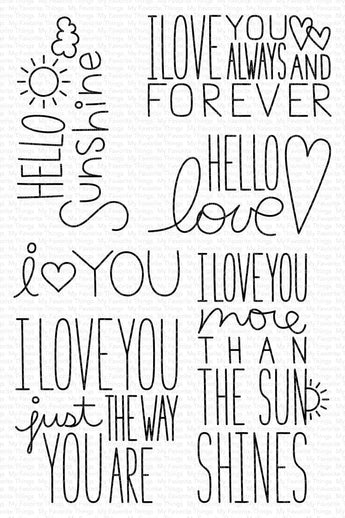 HELLO
Sunshine
I LOVE YOU
ALWAYS AND
FOREVER
HELLO
love
i YOU
I LOVE YOU
just THE WAY
YOU ARE
I LOVE YOU
more
THAN
THE SUN
SHINES